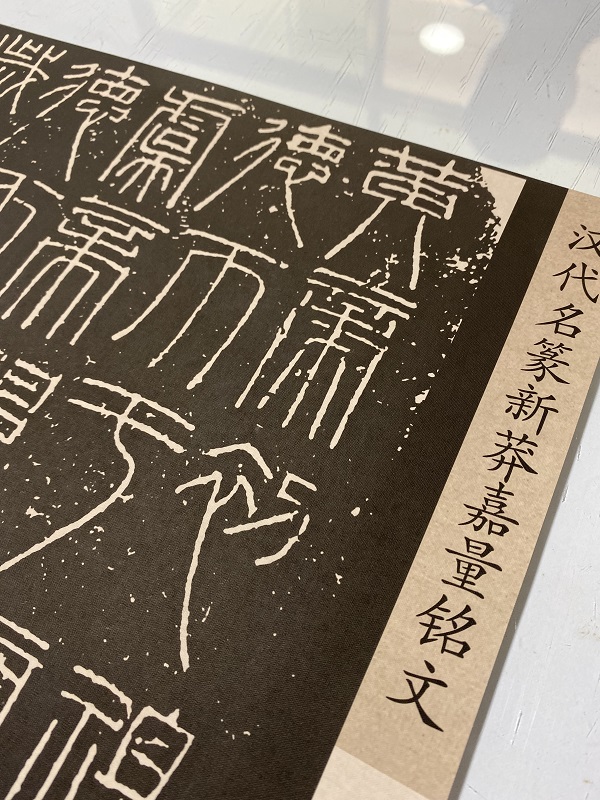 汉代名篆新莽嘉量铭文
黄帝初祖
德帀于虞
虞帝始
德
歲